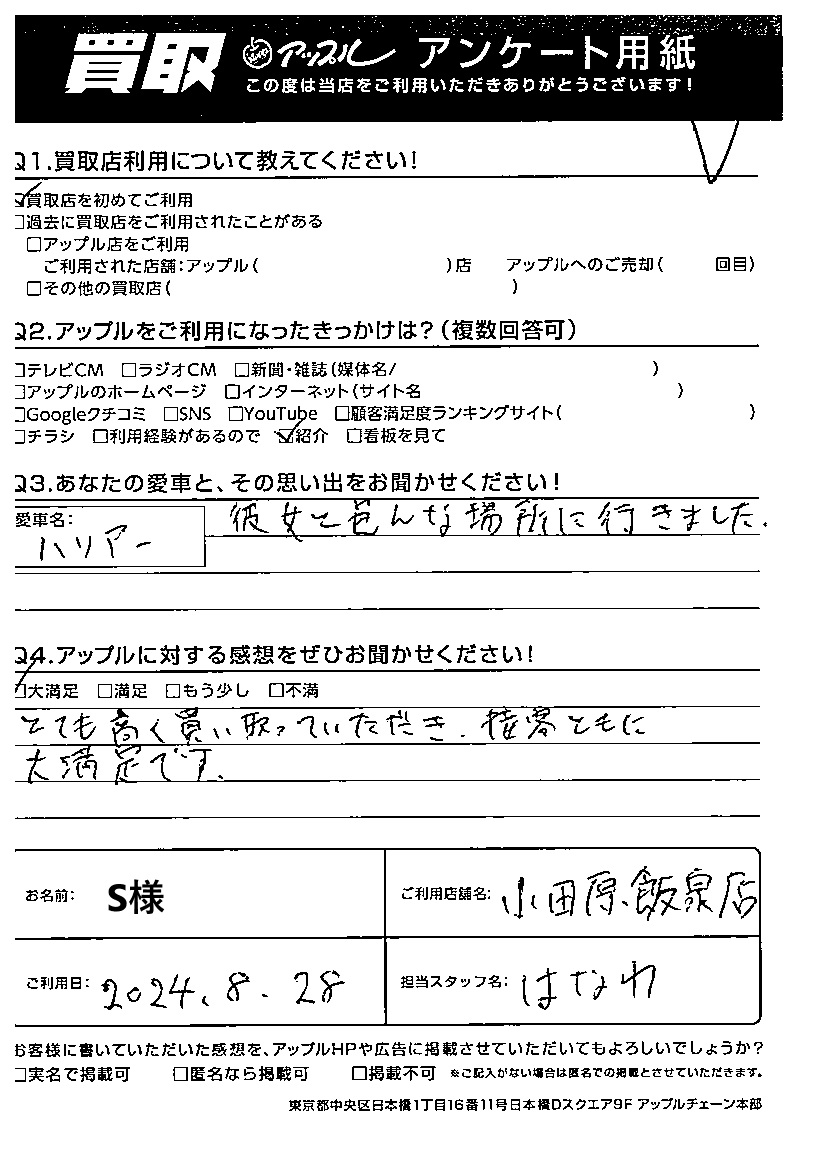 買取 アップル アンケート用紙
この度は当店をご利用いただきありがとうございます!
Q1.買取店利用について教えてください!
☑買取店を初めてご利用
□過去に買取店をご利用されたことがある
□アップル店をご利用
ご利用された店舗:アップル( )店 アップルへのご売却( 回目)
□その他の買取店( )
Q2.アップルをご利用になったきっかけは?(複数回答可)
□テレビCM □ラジオCM □新聞・雑誌(媒体名/ )
□アップルのホームページ □インターネット(サイト名 )
□Googleクチコミ □SNS □YouTube □顧客満足度ランキングサイト( )
□チラシ □利用経験があるので ☑紹介 □看板を見て
Q3.あなたの愛車と、その思い出をお聞かせください!
愛車名:
ハリアー
彼女と色んな場所に行きました.
Q4.アップルに対する感想をぜひお聞かせください!
☑大満足 □満足 □もう少し □不満
とても高く買い取っていただき、接客ともに
大満足です.
お名前: S様 ご利用店舗名: 小田原飯泉店
ご利用日: 2024.8.28 担当スタッフ名: はなわ
お客様に書いていただいた感想を、アップルHPや広告に掲載させていただいてもよろしいでしょうか?
□実名で掲載可 □匿名なら掲載可 □掲載不可 ※ご記入がない場合は匿名での掲載とさせていただきます。
東京都中央区日本橋1丁目16番11号日本橋Dスクエア9F アップルチェーン本部